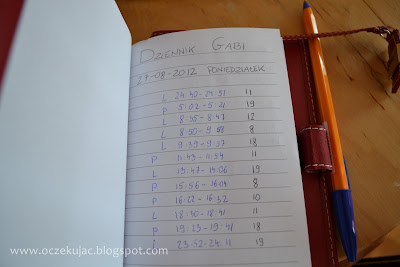 DZIENNIK GABI
27-08-2012 PONIEDZIAŁEK
L 24:40-24:51 11
P 5:02-5:21 19
L 8:35-8:47 12
L 8:50-9:08 8
L 9:39-9:57 18
P 11:43-11:54 11
L 13:47-14:06 19
P 15:56-16:04 8
P 16:22-16:32 10
L 18:30-18:41 11
P 19:23-19:41 18
L 23:52-24:11 19
www.oczekujac.blogspot.com